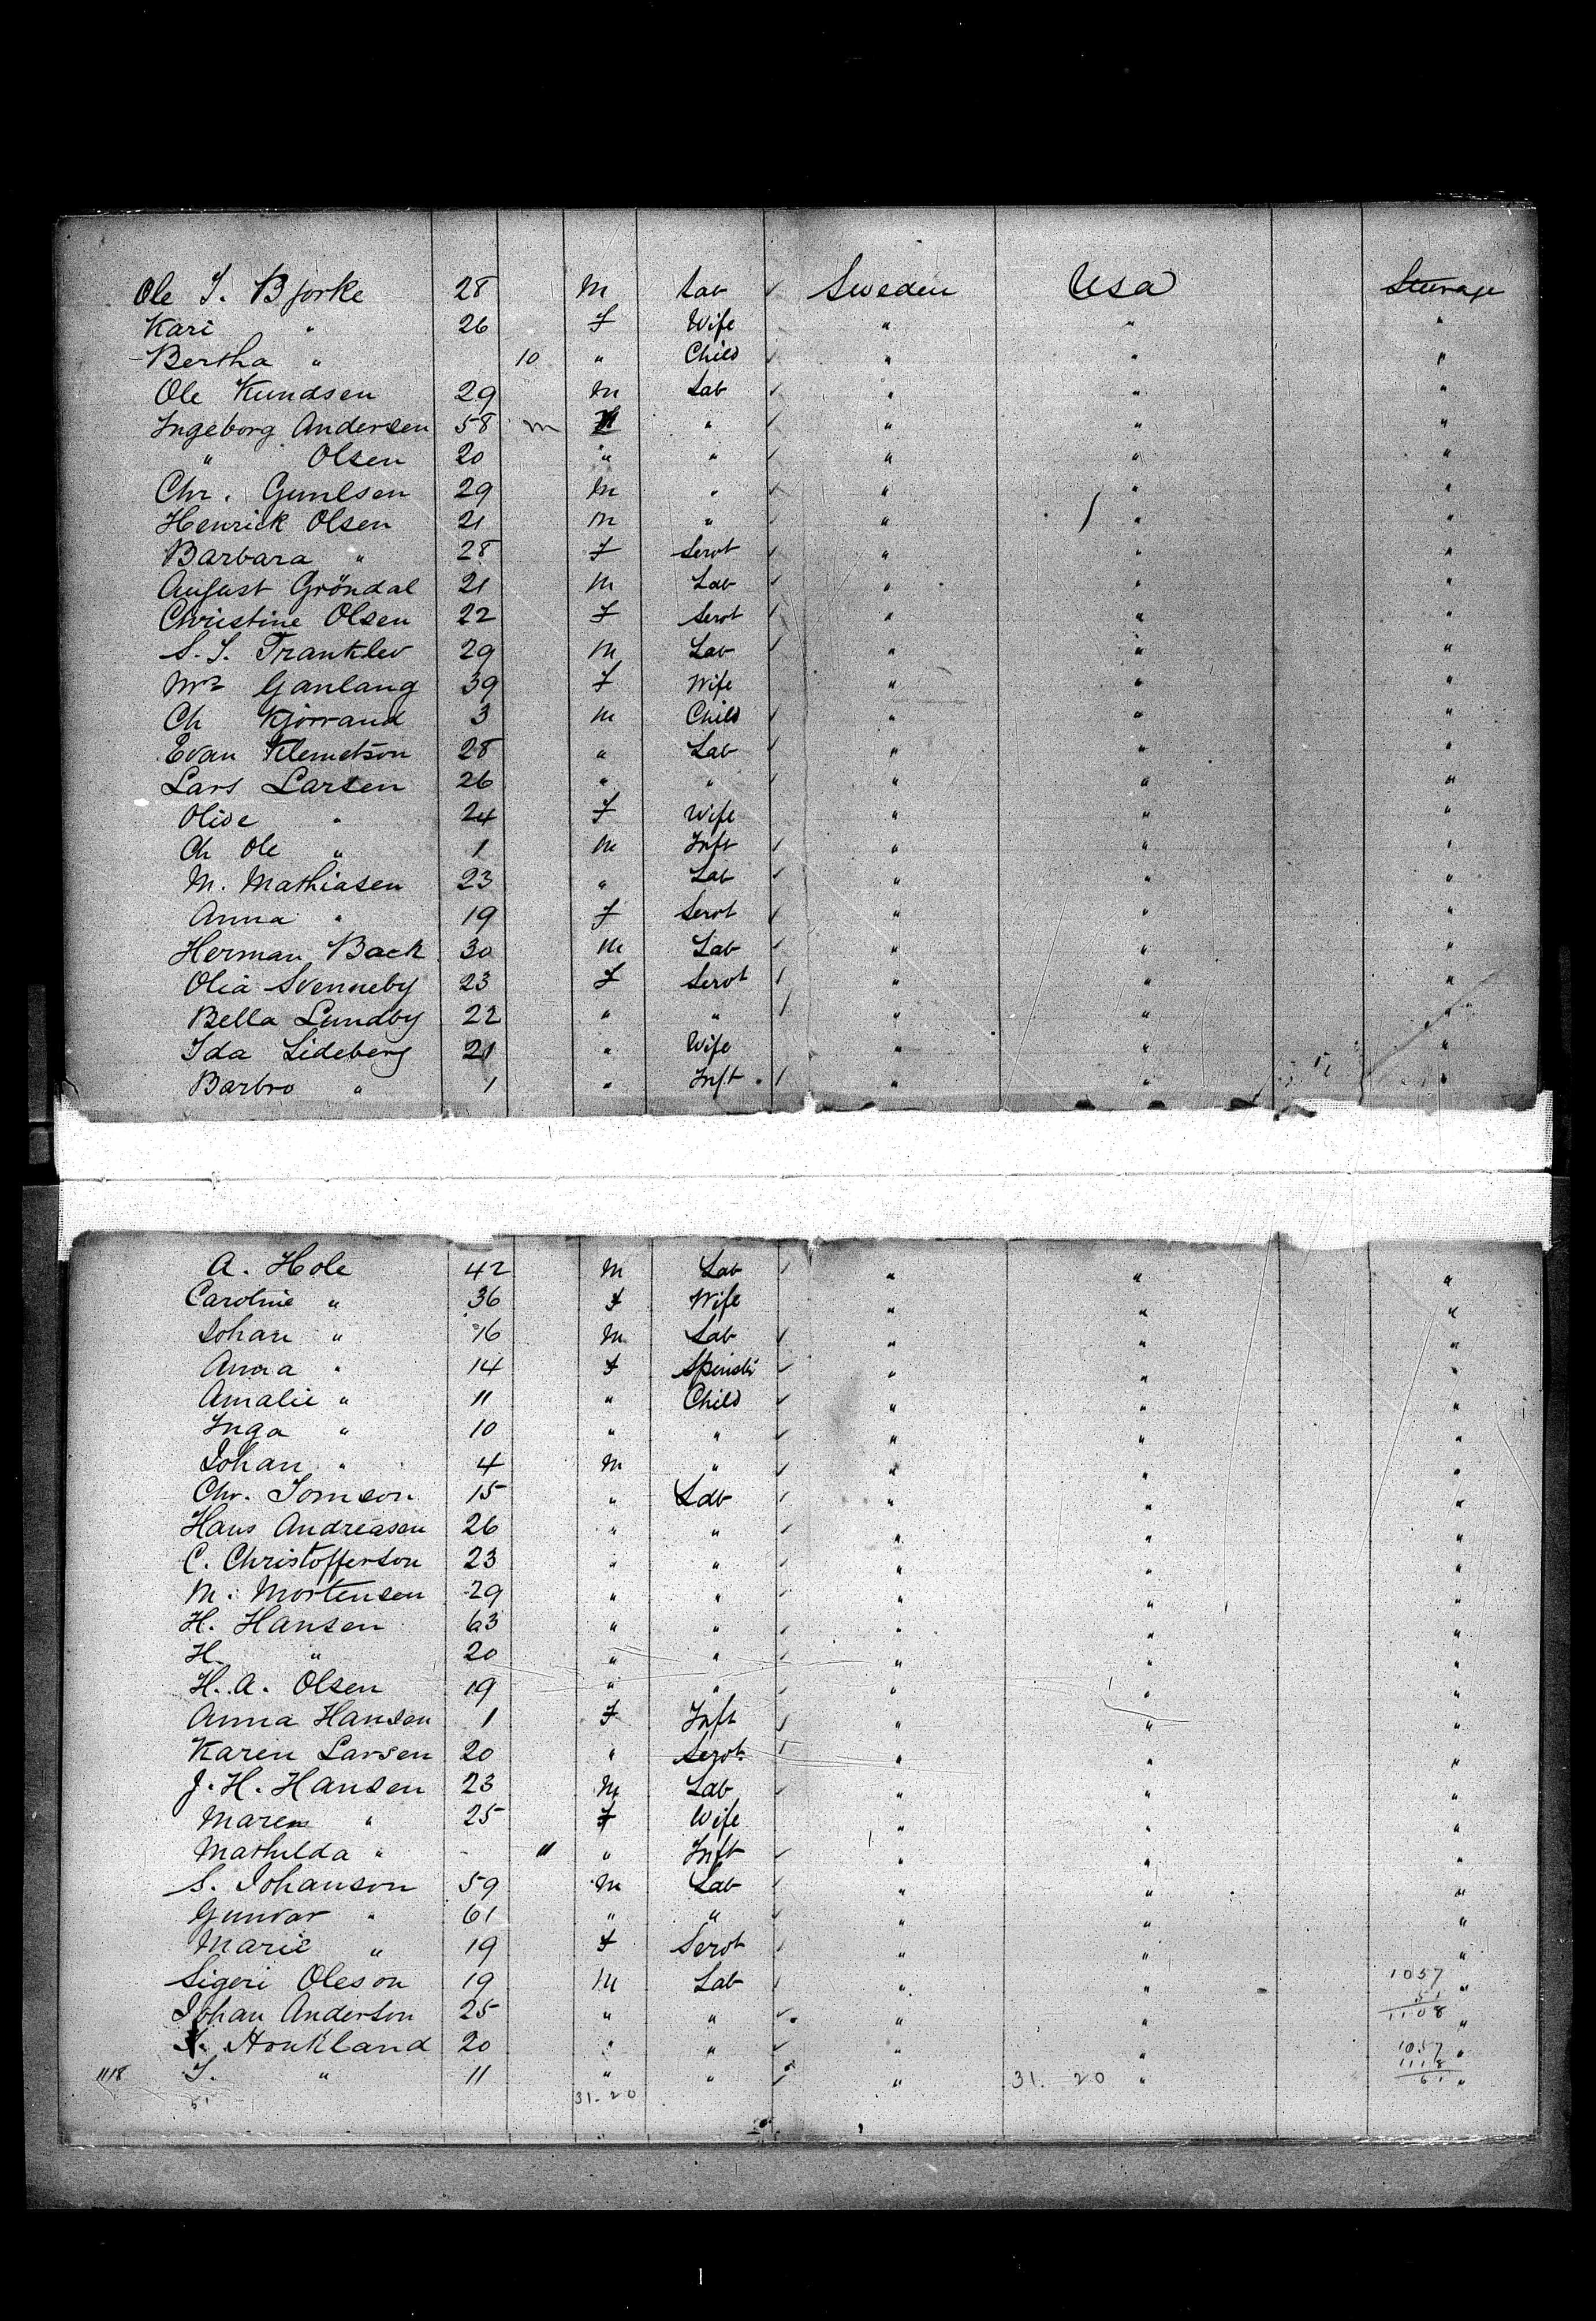 Ole I. Bjorke 28 M Lab ✓ Sweden Usa Steerage
Kari " 26 F Wife " " "
Bertha " 10 " Child ✓ " " "
Ole Kundsen 29 M Lab ✓ " " "
Ingeborg Andersen 58 m " ✓ " " "
" Olsen 20 " " ✓ " " "
Chr. Gunlsen 29 M " ✓ " " "
Henrick Olsen 21 M " ✓ " " "
Barbara " 28 F Servt ✓ " " "
August Gröndal 21 M Lab ✓ " " "
Christine Olsen 22 F Servt ✓ " " "
S. I. Tranklev 29 M Lab ✓ " " "
Mrs Ganlang 39 F Wife " " "
Ch Kjorrand 3 M Child ✓ " " "
Evan Klemetson 28 " Lab ✓ " " "
Lars Larsen 26 " " ✓ " " "
Olive " 24 F Wife " " "
Ch Ole " 1 M Inft ✓ " " "
M. Mathiasen 23 " Lab ✓ " " "
Anna " 19 F Servt ✓ " " "
Herman Back 30 M Lab ✓ " " "
Olia Svenneby 23 F Servt ✓ " " "
Bella Lundby 22 " " ✓ " " "
Ida Lideberg 21 " Wife " " "
Barbro " 1 " Inft ✓ " " "
A. Hole 42 M Lab ✓ " " "
Caroline " 36 F Wife " " "
Johan " 16 M Lab ✓ " " "
Anna " 14 F Spinstr ✓ " " "
Amalie " 11 " Child ✓ " " "
Inga " 10 " " ✓ " " "
Johan " 4 M " ✓ " " "
Chr. Tomson 15 " Lab ✓ " " "
Hans Andreasen 26 " " ✓ " " "
C. Christofferson 23 " " ✓ " " "
M. Mortensen 29 " " ✓ " " "
H. Hansen 63 " " ✓ " " "
H. " 20 " " ✓ " " "
H. A. Olsen 19 " " ✓ " " "
Anna Hansen 1 F Inft ✓ " " "
Karen Larsen 20 " Servt ✓ " " "
J. H. Hansen 23 M Lab ✓ " " "
Maren " 25 F Wife " " "
Mathilda " 11 " Inft ✓ " " "
S. Johanson 59 M Lab ✓ " " "
Gunvar " 61 " " ✓ " " "
Marie " 19 F Servt ✓ " " "
Sigeri Oleson 19 M Lab ✓ " " 1057 "
51
Johan Anderson 25 " " ✓ " " 1108 "
Honkland 20 " " ✓ " " 1057 "
1118
1118 I. " 11 " " ✓ " 31. 20 " 61 "
61 31-20